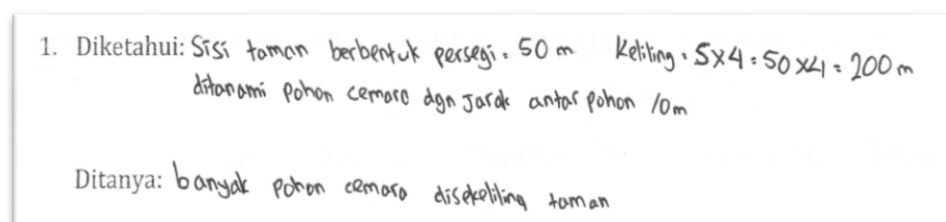 1. Diketahui: Sisi taman berbentuk persegi = 50 m Keliling = S x 4 = 50 x 4 = 200 m
ditanami pohon cemara dgn Jarak antar pohon 10m
Ditanya: banyak pohon cemara disekeliling taman